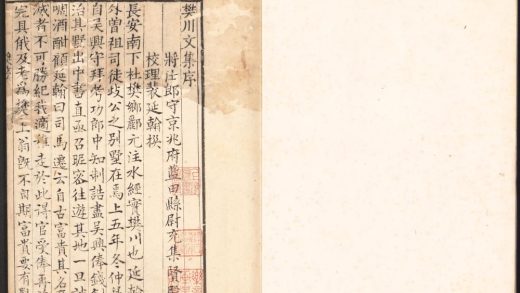 樊川文集序
將仕郎守京兆府藍田縣尉充集賢
校理裴延翰撰
長安南下杜樊鄉酈元注水經實樊川也延翰
外曾祖司徒岐公之別墅在焉上五年冬仲
自吳興守拜考功郎中知制誥盡吳興俸錢
治其墅出中書直亟召昵密往遊其地一旦
啁酒酣顧延翰曰司馬遷云自古富貴其名
滅者不可勝紀我適稚走於此得官受俸再
完具俄及老為樊上翁既不自期富貴要有